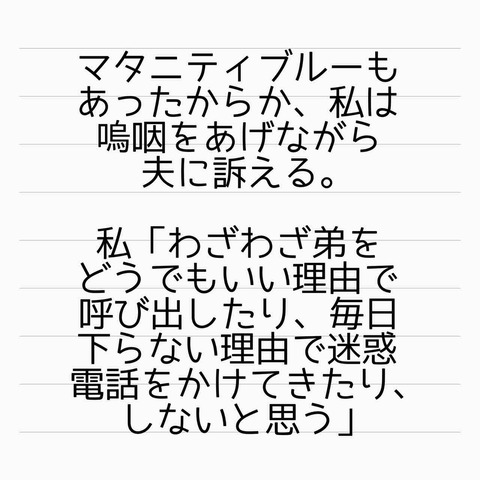 マタニティブルーも
あったからか、私は
嗚咽をあげながら
夫に訴える。
私「わざわざ弟を
どうでもいい理由で
呼び出したり、毎日
下らない理由で迷惑
電話をかけてきたり、
しないと思う」